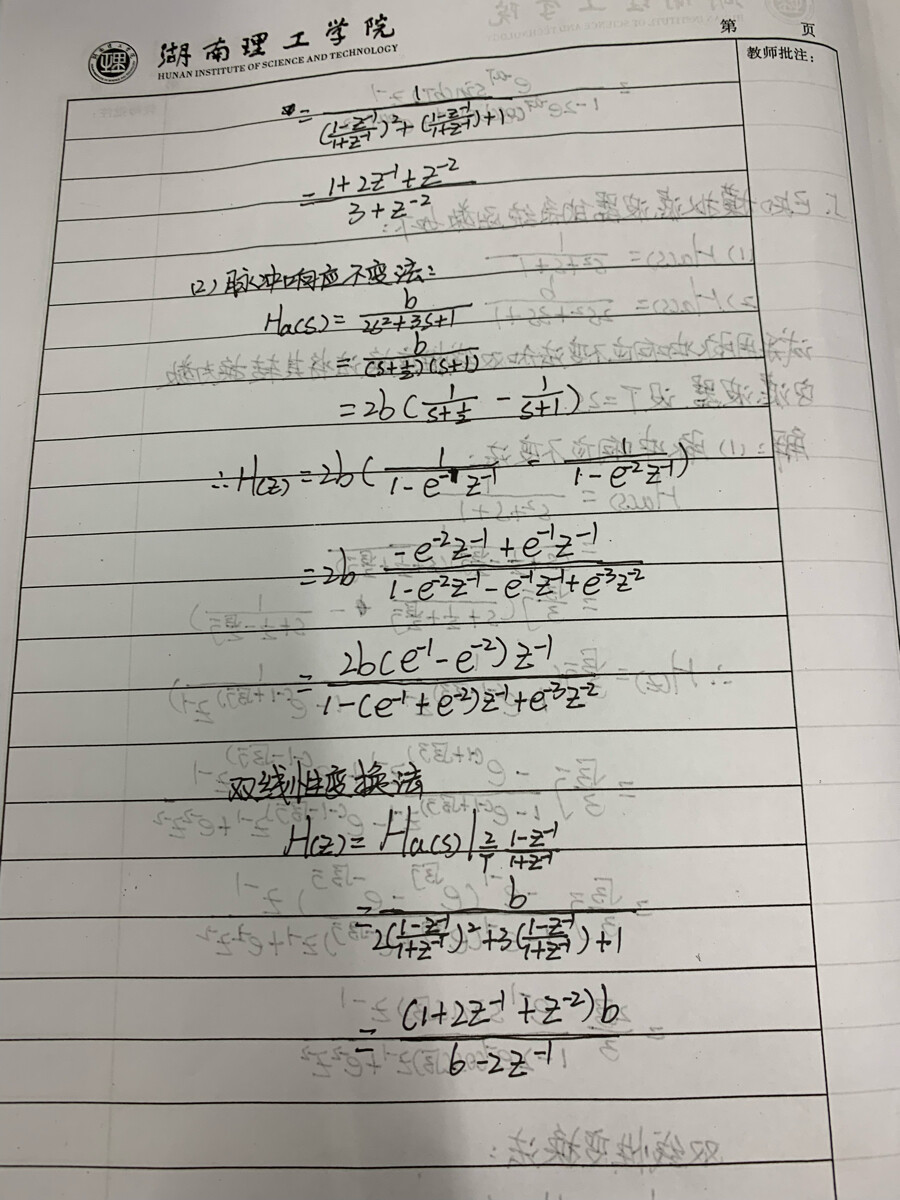 湖南理工学院
HUNAN INSTITUTE OF SCIENCE AND TECHNOLOGY
第 页
教师批注：
= 1/(((1-z⁻¹)/(1+z⁻¹))² + ((1-z⁻¹)/(1+z⁻¹)) + 1)
= (1+2z⁻¹+z⁻²)/(3+z⁻²)
(2) 脉冲响应不变法：
Ha(s) = b/(2s²+3s+1)
= b/((s+½)(s+1))
= 2b(1/(s+½) - 1/(s+1))
∴ H(z) = 2b(1/(1-e⁻¹z⁻¹) - 1/(1-e⁻²z⁻¹))
= 2b (-e⁻²z⁻¹+e⁻¹z⁻¹)/(1-e⁻²z⁻¹-e⁻¹z⁻¹+e⁻³z⁻²)
= 2b(e⁻¹-e⁻²)z⁻¹/(1-(e⁻¹+e⁻²)z⁻¹+e⁻³z⁻²)
双线性变换法
H(z) = Ha(s)| 2/T (1-z⁻¹)/(1+z⁻¹)
= b/(2((1-z⁻¹)/(1+z⁻¹))²+3((1-z⁻¹)/(1+z⁻¹))+1)
= (1+2z⁻¹+z⁻²)b/(6-2z⁻¹)